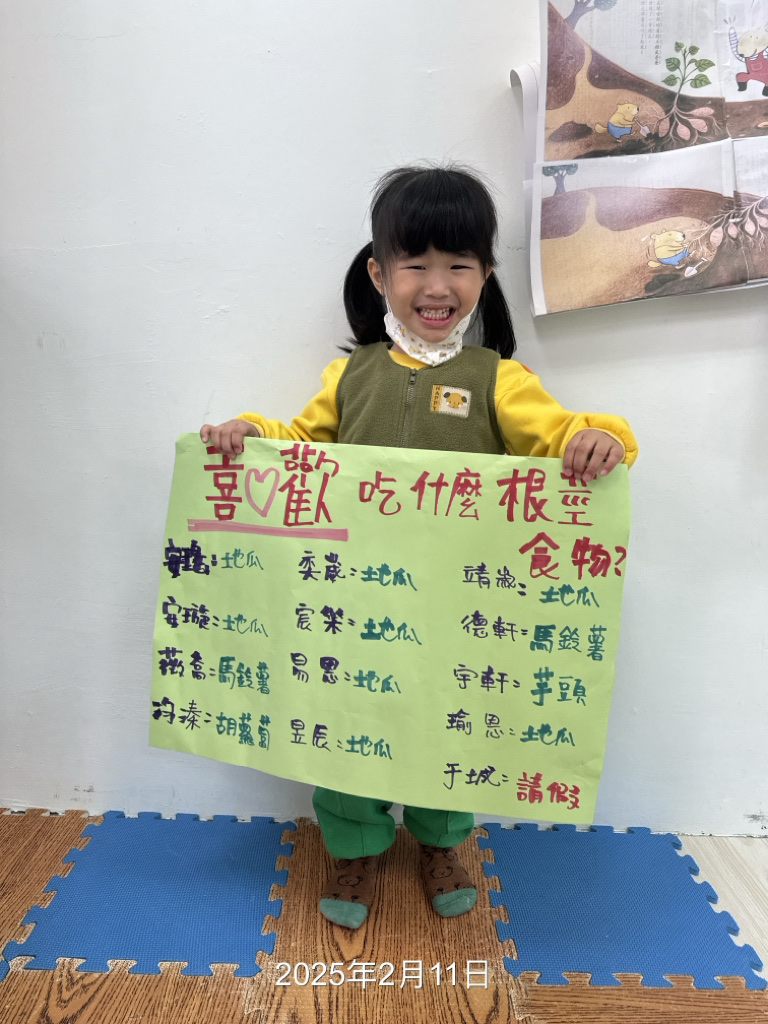 HAPPY
喜歡吃什麼根莖
食物?
安璐:地瓜
安璇:地瓜
薇喬:馬鈴薯
沟溱:胡蘿蔔
奕崴:地瓜
宸榮:地瓜
易恩:地瓜
昱辰:地瓜
靖崴:地瓜
德軒:馬鈴薯
宇軒:芋頭
瑜恩:地瓜
于:請假
2025年2月11日